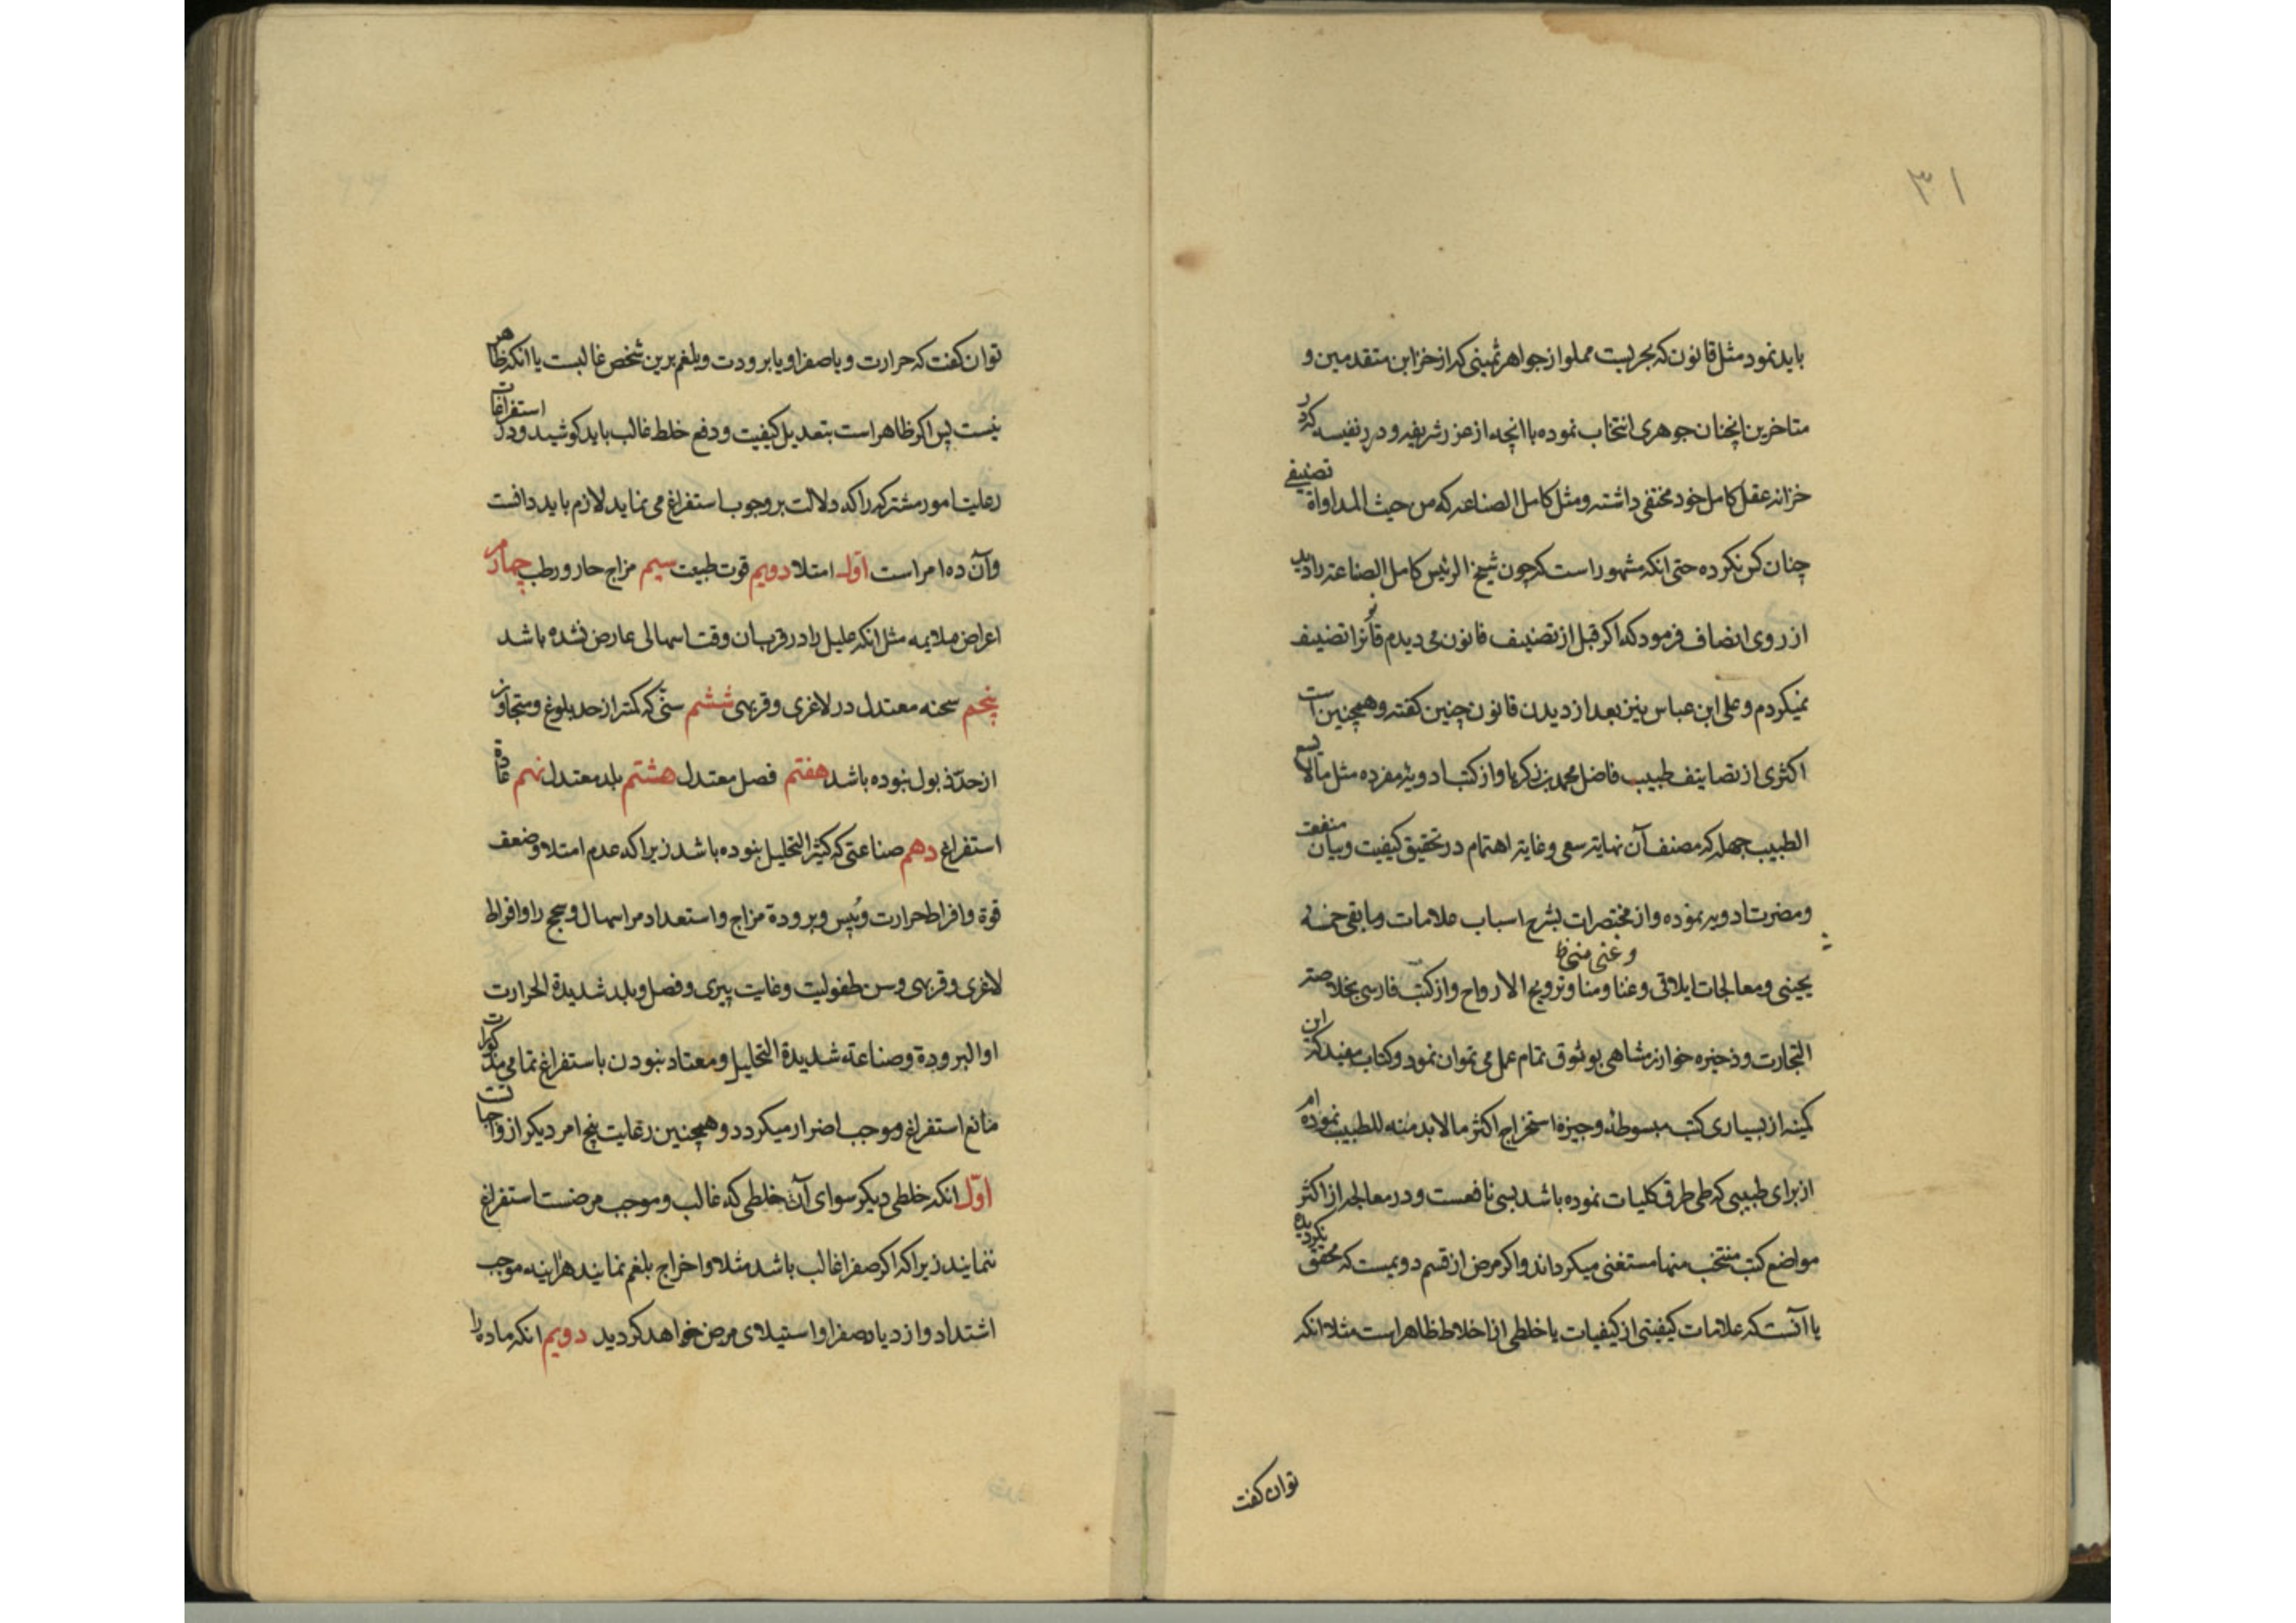 ۳۱
باید نمود مثل قانون که بحریست مملو از جواهر ثمینی که از خزاین متقدمین و
متاخرین انچنان جوهری انتخاب نموده با انچه از غرر شریفه و درر نفیسه که در
خزانه عقل کامل خود مختفی داشته و مثل کامل الصناعه که من حیث المداواة تصنیفی
چنان کس نکرده حتی انکه مشهور است که چون شیخ الرئیس کامل الصناعة را دید
از روی انصاف فرمود که اکر قبل از تصنیف قانون می دیدم قانونرا تصنیف
نمیکردم و علی ابن عباس نیز بعد از دیدن قانون چنین کفته و همچنین است
اکثری از تصانیف طبیب فاضل محمد بن زکریا و از کتب ادویهٔ مفرده مثل مالا یسع
الطبیب جهله که مصنف آن نهایة سعی و غایة اهتمام در تحقیق کیفیت و بیان منفعت
و مضرت ادویه نموده و از مختصرات بشرح اسباب علامات و مابقی خمسه
و غنی منی خ
یحیی و معالجات ایلاقی و غنا و منا و ترویح الارواح و از کتب فارسی بخلاصة
التجارت و ذخیره خوارزمشاهی بوثوق تمام عمل می توان نمود و کتاب مفید که این
کمینه از بسیاری کتب مبسوطه وجیزة استخراج اکثر مالابد منه للطبیب نموده ام
از برای طبیبی که طی طرق کلیات نموده باشد بسی نافعست و در معالجه از اکثر
مواضع کتب منتخب منها مستغنی میکرداند و اکر مرض از قسم دویمست که محقق نکردیده
یا آنست که علامات کیفیتی از کیفیات یا خلطی از اخلاط ظاهر است مثلا انکه
توان کفت
توان کفت که حرارت و یا صفرا و یا برودت و بلغم برین شخص غالبست یا انکه ظاهر
نیست پس اکر ظاهر است بتعدیل کیفیت و دفع خلط غالب باید کوشید و در استفراغات
رعایت امور مشترکه را که دلالت بر وجوب استفراغ می نماید لازم باید دانست
و آن ده امر است اوّل امتلا دویم قوت طبیعت سیم مزاج حار و رطب چهارم
اعراض ملایمه مثل انکه علیل را در قرب آن وقت اسهالی عارض نشده باشد
پنجم سحنه معتدل در لاغری و فربهی ششم سنّی که کمتر از حد بلوغ و متجاوز
از حدّ ذبول نبوده باشد هفتم فصل معتدل هشتم بلد معتدل نهم عادة
استفراغ دهم صناعتی که کثیر التحلیل نبوده باشد زیرا که عدم امتلا و ضعف
قوة و افراط حرارت و یُبس و برودة مزاج و استعداد مر اسهال و سحج را و افراط
لاغری و فربهی و سن طفولیت و غایت پیری و فصل و بلد شدیدة الحرارت
او البرودة و صناعة شدیدة التحلیل و معتاد نبودن باستفراغ تمامی مذکورات
مانع استفراغ و موجب اضرار میکردد و همچنین رعایت پنج امر دیکر از واجباتست
اوّل انکه خلطی دیکر سوای آن خلطی که غالب و موجب مرضست استفراغ
ننمایند زیرا که اکر صفرا غالب باشد مثلا و اخراج بلغم نمایند هراینه موجب
اشتداد و ازدیاد صفرا و استیلای مرض خواهد کردید دویم انکه ماده را